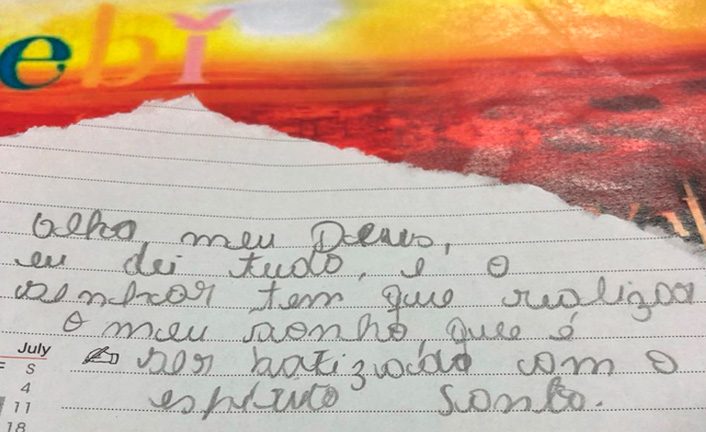 ebi
Olha meu Deus,
eu dei tudo, e o
senhor tem que realizar
o meu sonho, que é
ser batizado com o
espírito santo.
July
S
4
11
18